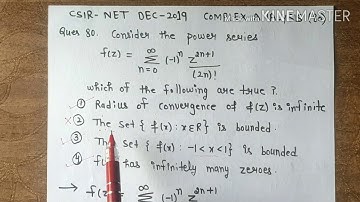 CSIR-NET DEC-2019 COMPLEX
Made With
KINEMASTER
Ques 80. Consider the power series
f(z) = ∞ Σ n=0 (-1)^n z^{2n+1} / (2n)!
which of the following are true?
① Radius of convergence of f(z) is infinite
② The set { f(x) : x∈R } is bounded.
③ The set { f(x) : -1 < x < 1 } is bounded
④ has infinitely many zeroes.
→ f(z) = ∞ Σ (-1)^n z^{2n+1}